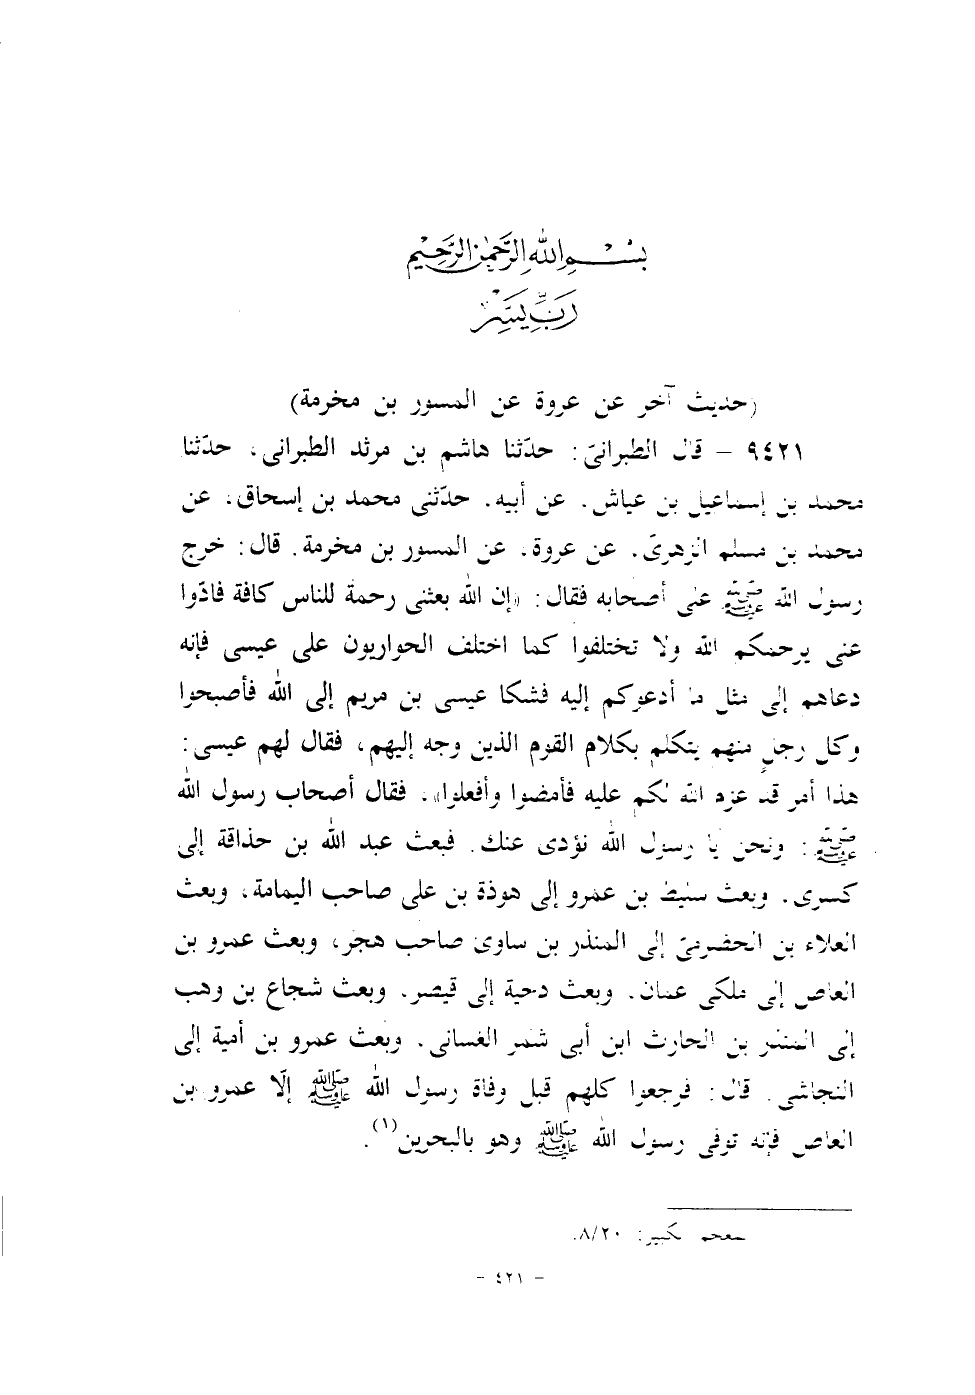 بسم الله الرحمن الرحيم
رب يسر
(حديث آخر عن عروة عن المسور بن مخرمة)
٩٤٢١ – قال الطبرانىّ: حدّثنا هاشم بن مرثد الطبرانى، حدّثنا
محمد بن إسماعيل بن عياش. عن أبيه. حدّثنى محمد بن إسحاق، عن
محمد بن مسلم الزهرىّ. عن عروة. عن المسور بن مخرمة. قال: خرج
رسول الله ﷺ على أصحابه فقال: «إن الله بعثنى رحمة للناس كافة فادّوا
عنى يرحمكم الله ولا تختلفوا كما اختلف الحواريون على عيسى فإنه
دعاهم إلى مثل ما أدعوكم إليه فشكا عيسى بن مريم إلى الله فأصبحوا
وكل رجلٍ منهم يتكلم بكلام القوم الذين وجه إليهم، فقال لهم عيسى:
هذا أمر قد عزم الله لكم عليه فأمضوا وأفعلوا». فقال أصحاب رسول الله
ﷺ: ونحن يا رسول الله نؤدى عنك. فبعث عبد الله بن حذاقة إلى
كسرى. وبعث سليط بن عمرو إلى هوذة بن على صاحب اليمامة، وبعث
العلاء بن الحضرمىّ إلى المنذر بن ساوى صاحب هجر، وبعث عمرو بن
العاص إلى ملكى عمان. وبعث دحية إلى قيصر. وبعث شجاع بن وهب
إلى المنذر بن الحارث ابن أبى شمر الغسانى. وبعث عمرو بن أمية إلى
النجاشى. قال: فرجعوا كلهم قبل وفاة رسول الله ﷺ إلّا عمرو بن
العاص فإنه توفى رسول الله ﷺ وهو بالبحرين(١).
معجم كبير: ٨/٢٠.
– ٤٢١ –